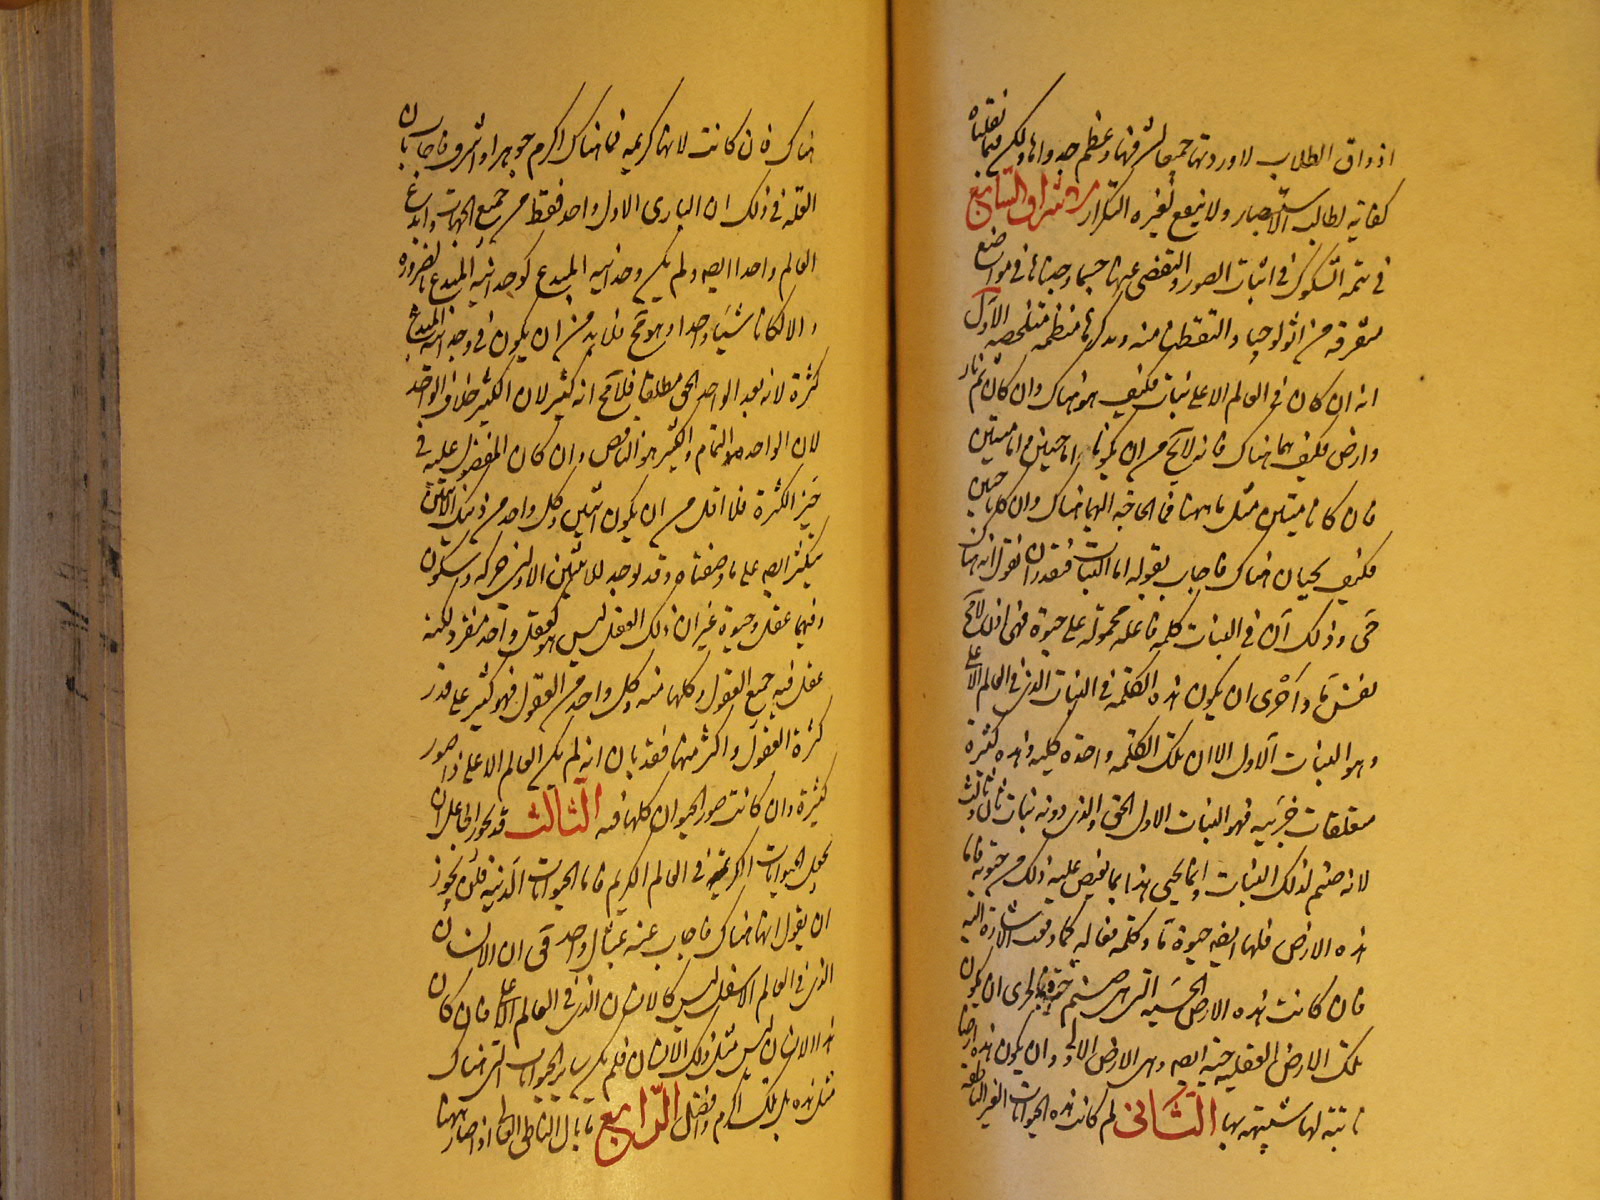 اذواق الطلاب لاوردتها جميعا لشرفها وعظم جدواها ولكن فيما نقلناه
كفاية لطالب الاستبصار ولا ينفع لغيره التكرار الاشراق السابع
في تتمة الشكوك في اثبات الصور والتقصى عنها حسبما وجدناها في مواضع
متفرقة من اثولوجيا والتقطنا منه ونذكرها منظمة متلخصة الاول
انه ان كان في العالم الاعلى نبات فكيف هو هناك وان كان ثم نار
وارض فكيف هما هناك فانه لا يخ من ان يكونا اما حيين واما ميتين
فان كانا ميتين مثل ما ههنا فما الحاجة اليهما هناك وان كانا حيين
فكيف يحييان هناك فاجاب بقوله اما النبات فنقدر ان نقول انه هناك
حى وذلك ان في النبات كلمة فاعلة محمولة على حيوة فهى اذن لا محة
نفس ما واحرى ان يكون هذه الكلمة في النبات الذى في العالم الاعلى
وهو النبات الاول الا ان تلك الكلمة واحدة كلية وهذه كثيرة
متعلقات جزئية فهو النبات الاول الحق والذى دونه نبات ثان وثالث
لانه صنم لذلك النبات وانما يحيى هذا بما يفيض عليه ذلك من حيوته فاما
هذه الارض فلها ايضه حيوة ما وكلمة فعالة كما وقعت الاشارة اليه
فان كانت هذه الارض الحسية التى هى صنم حية فبالحرى ان يكون
تلك الارض العقلية حية ايضه وهى الارض الاولى وان يكون هذه ارضا
ثانية لها شبيهة بها الثانى لم كانت هذه الحيوانات الغير الناطقة
هناك فان كانت لانها كريمة فما هناك اكرم جوهرا واشرف فاجاب بان
العلة في ذلك ان البارى الاول واحد فقط من جميع الجهات وابدع
العالم واحدا ايضه ولم يكن وحدانية المبدع كوحدانية المبدع بالضرورة
والا لكانا شيئا واحدا وهو مح فلا بد من ان يكون في وحدانية المبدع
كثرة لانه بعد الواحد الحق مطلقا فلا مح انه كثير لان الكثير خلاف الواحد
لان الواحد هو التمام والكثير هو الناقص وان كان المفضول عليه في
حيز الكثرة فلا اقل من ان يكون اثنين وكل واحد من ذينك الاثنين
يتكثر ايضه على ما وصفناه وقد يوجد للاثنين الاولين حركة وسكون
وفيهما عقل وحيوة غير ان ذلك العقل ليس هو كعقل واحد منفرد لكنه
عقل فيه جميع العقول وكلها منه وكل واحد من العقول فهو كثير على قدر
كثرة العقول واكثر منها فقد بان انه لم يكن العالم الاعلى ذا صور
كثيرة وان كانت صور الحيوان كلها فيه الثالث قد يجوز لجاعل ان
يجعل الحيوانات الكريمة في العالم الكريم فاما الحيوانات الدنية فلن يجوز
ان يقول انها هناك فاجاب عنه بمثال واحد قى ان الانسان
الذى في العالم الاسفل ليس كالانسان الذى في العالم الاعلى فان كان
هذا الانسان ليس مثل ذلك الانسان فلم يكن ساير الحيوانات التى هناك
مثل هذه بل تلك اكرم وافضل الرابع ما بال الناطق العالى اذا صار ههنا